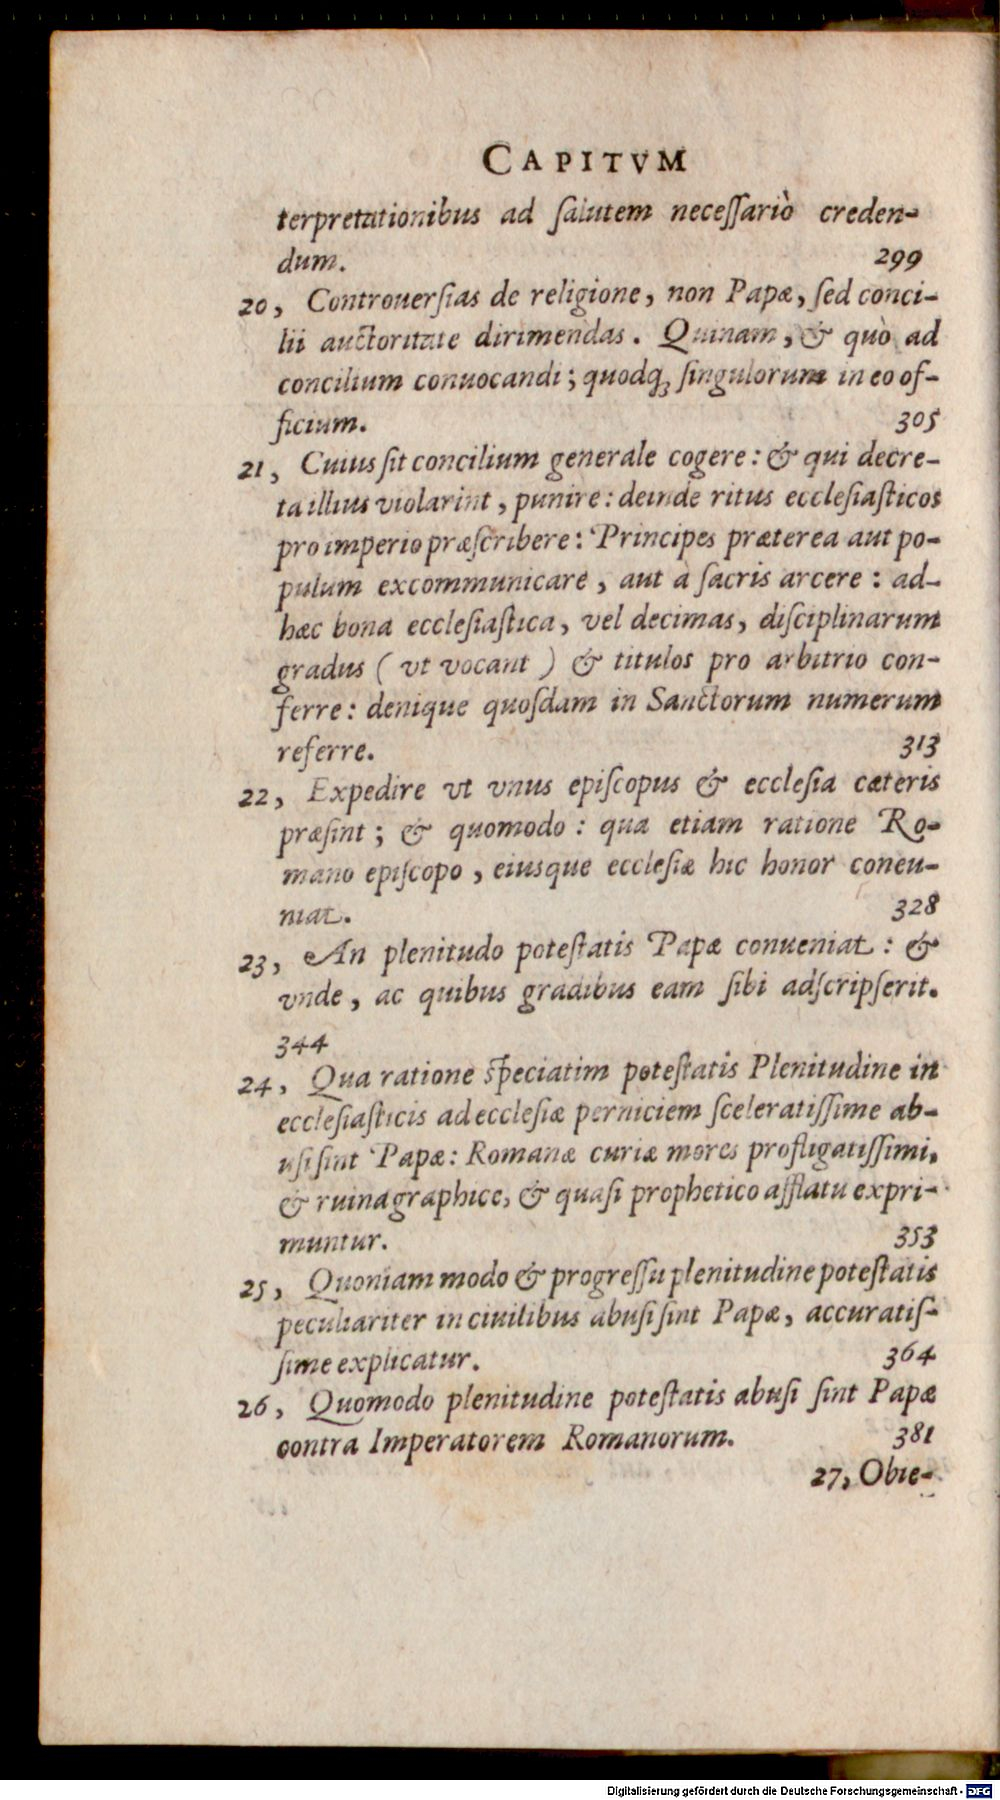 CAPITVM
terpretationibus ad ſalutem neceſſariò creden-
dum. 299
20, Controuerſias de religione, non Papæ, ſed conci-
lii auctoritate dirimendas. Quinam, & quò ad
concilium conuocandi; quodq; ſingulorum in eo of-
ficium. 305
21, Cuius ſit concilium generale cogere: & qui decre-
ta illius violarint, punire: deinde ritus eccleſiaſticos
pro imperio præſcribere: Principes præterea aut po-
pulum excommunicare, aut à ſacris arcere: ad-
hæc bona eccleſiaſtica, vel decimas, diſciplinarum
gradus (vt vocant) & titulos pro arbitrio con-
ferre: denique quoſdam in Sanctorum numerum
referre. 313
22, Expedire vt vnus epiſcopus & eccleſia cæteris
præſint; & quomodo: qua etiam ratione Ro-
mano epiſcopo, eiusque eccleſiæ hic honor coneu-
niat. 328
23, An plenitudo poteſtatis Papæ conueniat: &
vnde, ac quibus gradibus eam ſibi adſcripſerit.
344
24, Qua ratione ſpeciatim poteſtatis Plenitudine in
eccleſiaſticis ad eccleſiæ perniciem ſceleratiſſime ab-
uſi ſint Papæ: Romanæ curiæ mores profligatiſſimi,
& ruina graphice, & quaſi prophetico afflatu expri-
muntur. 353
25, Quoniam modo & progreſſu plenitudine poteſtatis
peculiariter in ciuilibus abuſi ſint Papæ, accuratiſ-
ſime explicatur. 364
26, Quomodo plenitudine poteſtatis abuſi ſint Papæ
contra Imperatorem Romanorum. 381
27, Obie-
Digitalisierung gefördert durch die Deutsche Forschungsgemeinschaft - DFG